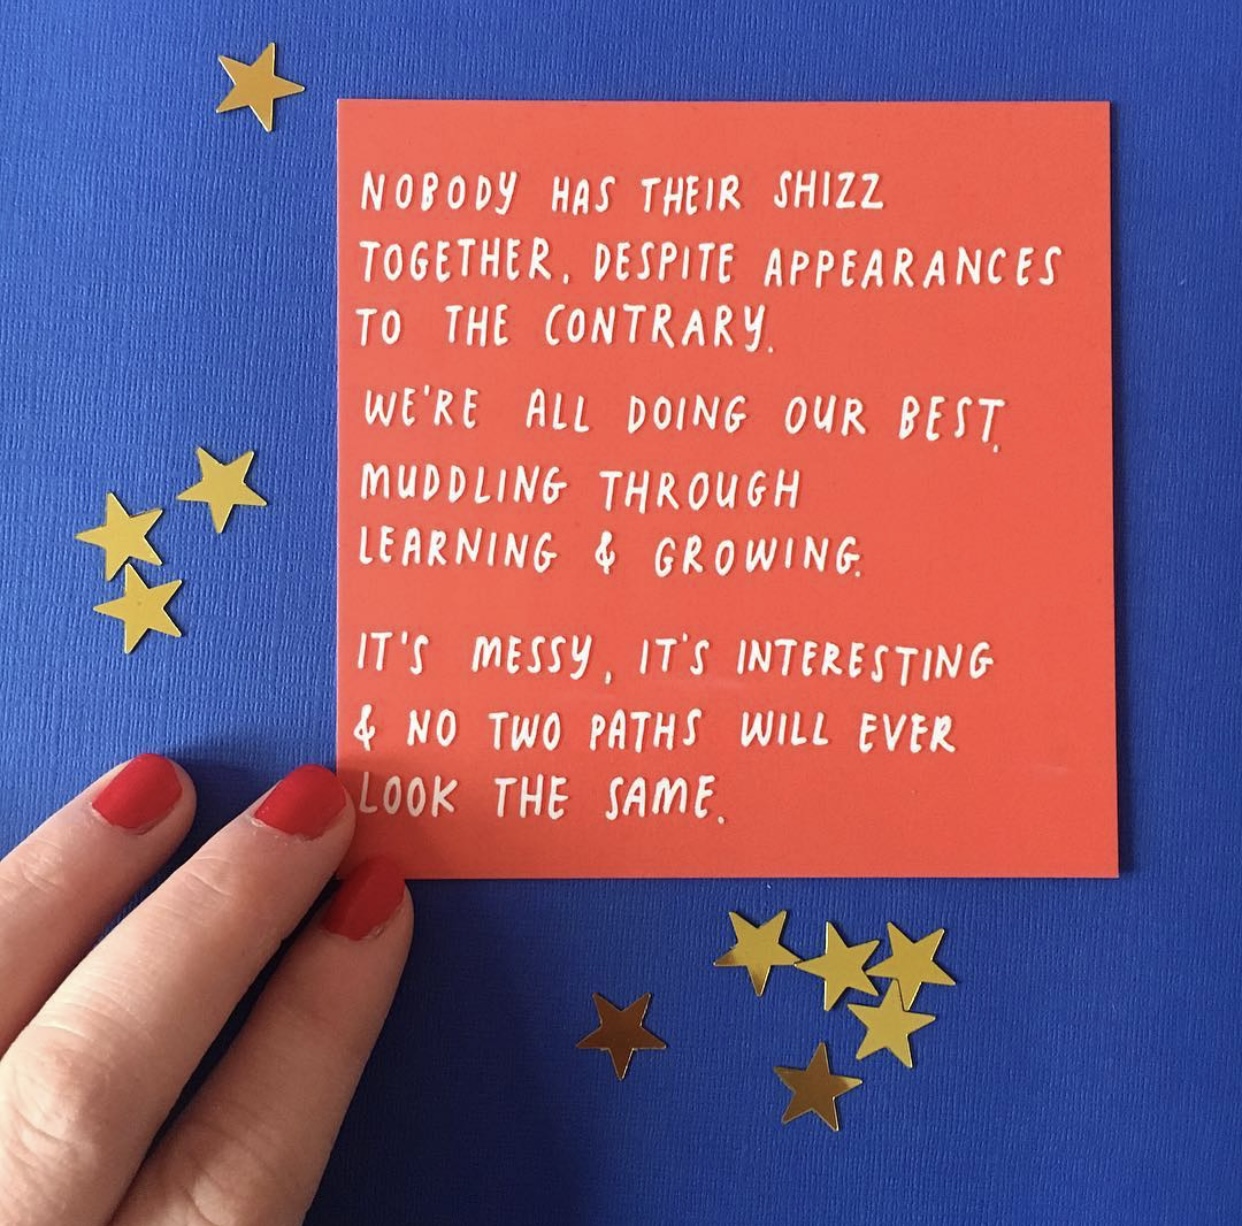 NOBODY HAS THEIR SHIZZ
TOGETHER, DESPITE APPEARANCES
TO THE CONTRARY.
WE'RE ALL DOING OUR BEST.
MUDDLING THROUGH
LEARNING & GROWING.
IT'S MESSY, IT'S INTERESTING
& NO TWO PATHS WILL EVER
LOOK THE SAME.